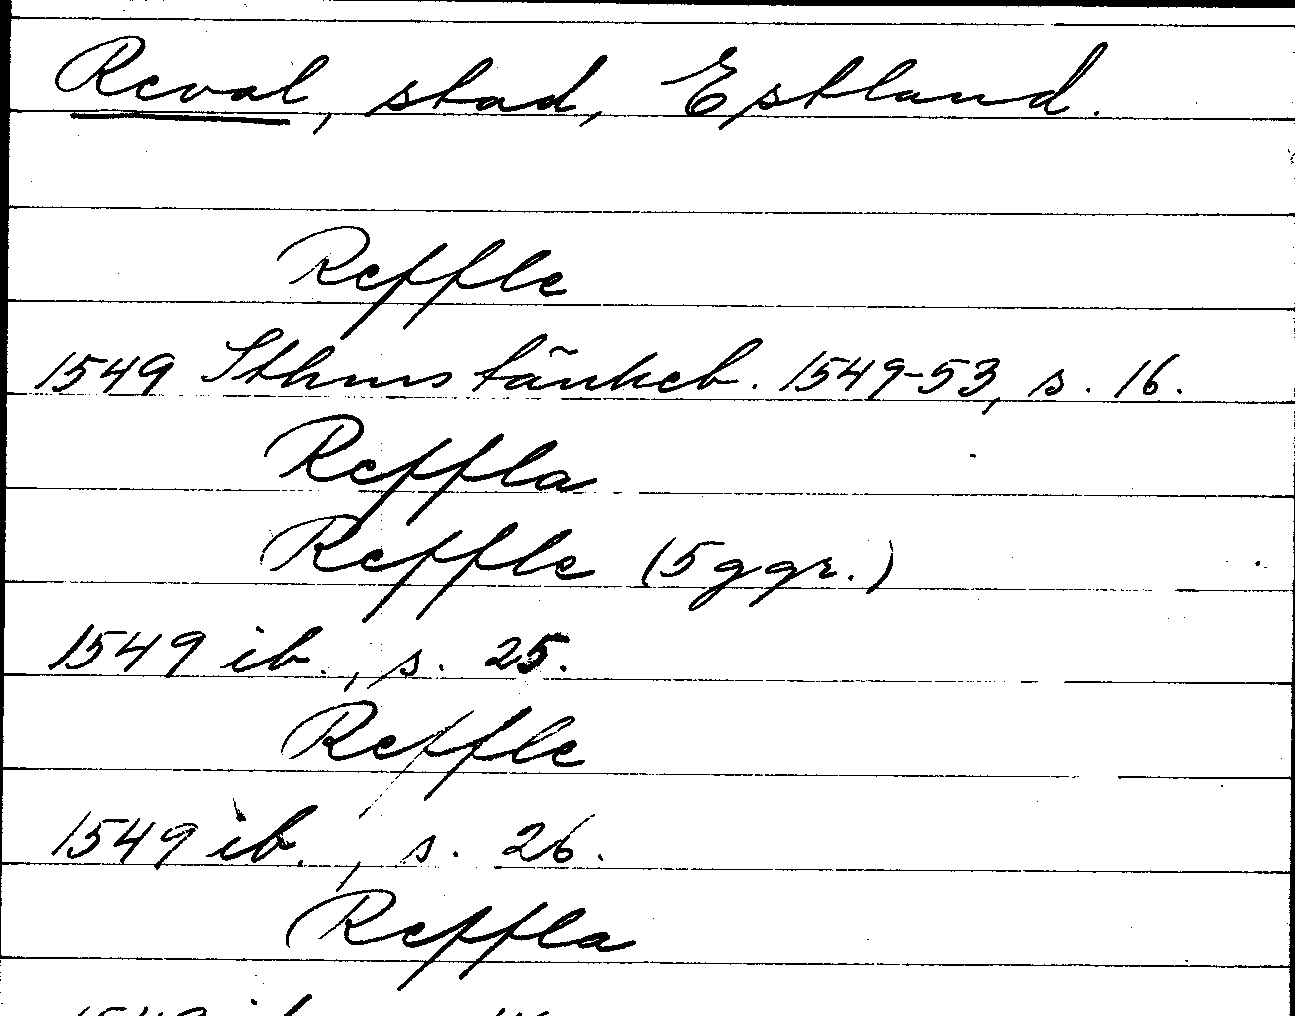 Reval, stad, Estland.
Reffle
1549 Sthms tänkeb. 1549-53, s. 16.
Reffla
Reffle (5 ggr.)
1549 ib., s. 25.
Reffle
1549 ib., s. 26.
Reffla
1549 ib